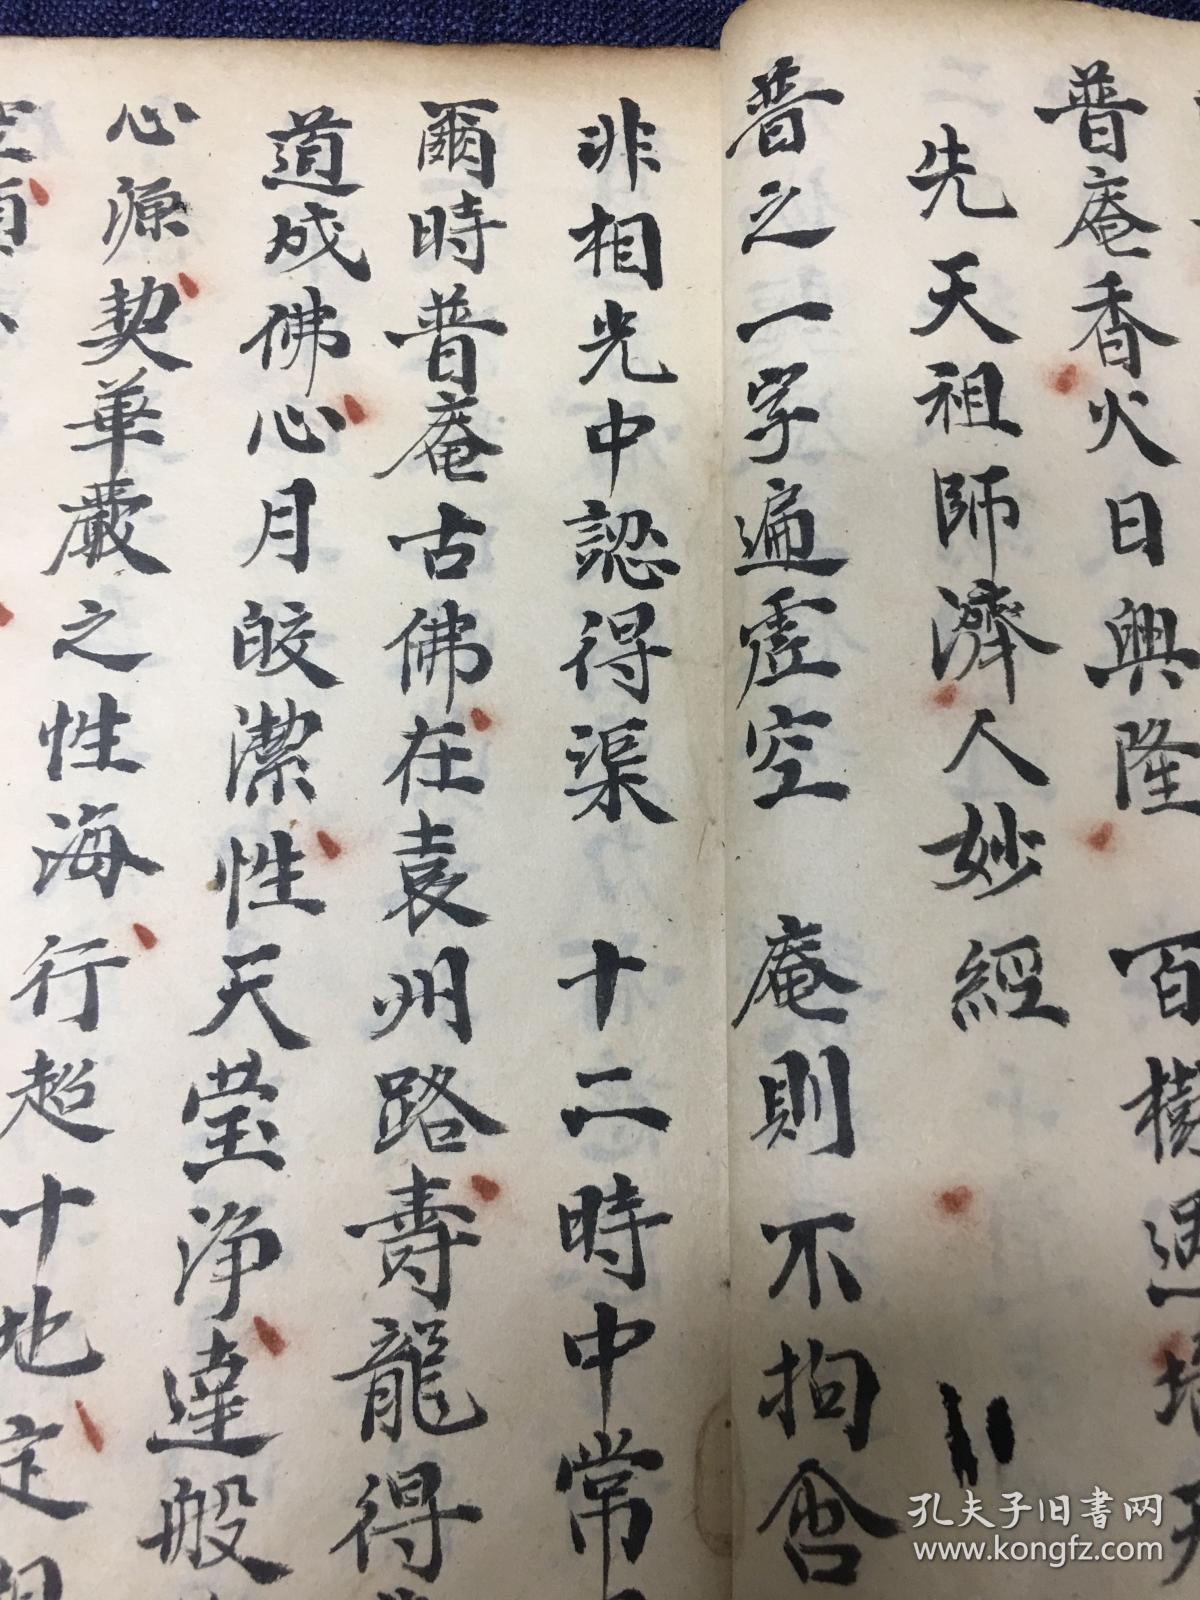 普庵香火日興隆 百
先天祖師濟人妙經
普之一字遍虛空 庵則不拘含
非相光中認得渠 十二時中常
爾時普庵古佛在袁州路壽龍得
道成佛心月皎潔性天瑩淨達般
心源契華嚴之性海行超十地定
孔夫子旧书网
www.kongfz.com